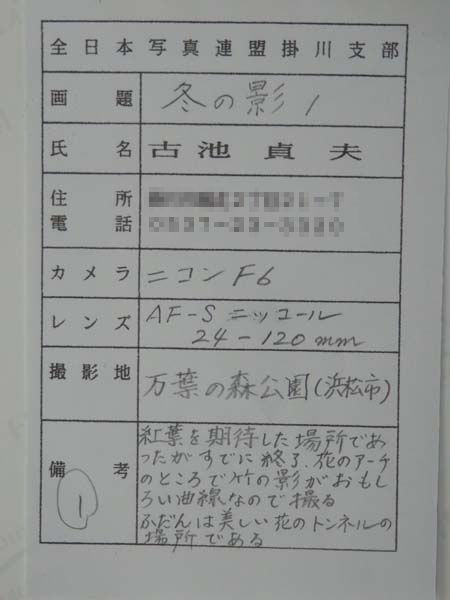 全日本写真連盟掛川支部
画題 冬の影 1
氏名 古池 貞夫
住所
電話
カメラ ニコンF6
レンズ AF-S ニッコール
24-120mm
撮影地 万葉の森公園(浜松市)
備考 紅葉を期待した場所であ
ったがすでに終了、花のアーチ
のところで竹の影がおもし
ろい曲線なので撮る
ふだんは美しい花のトンネルの
場所である
1